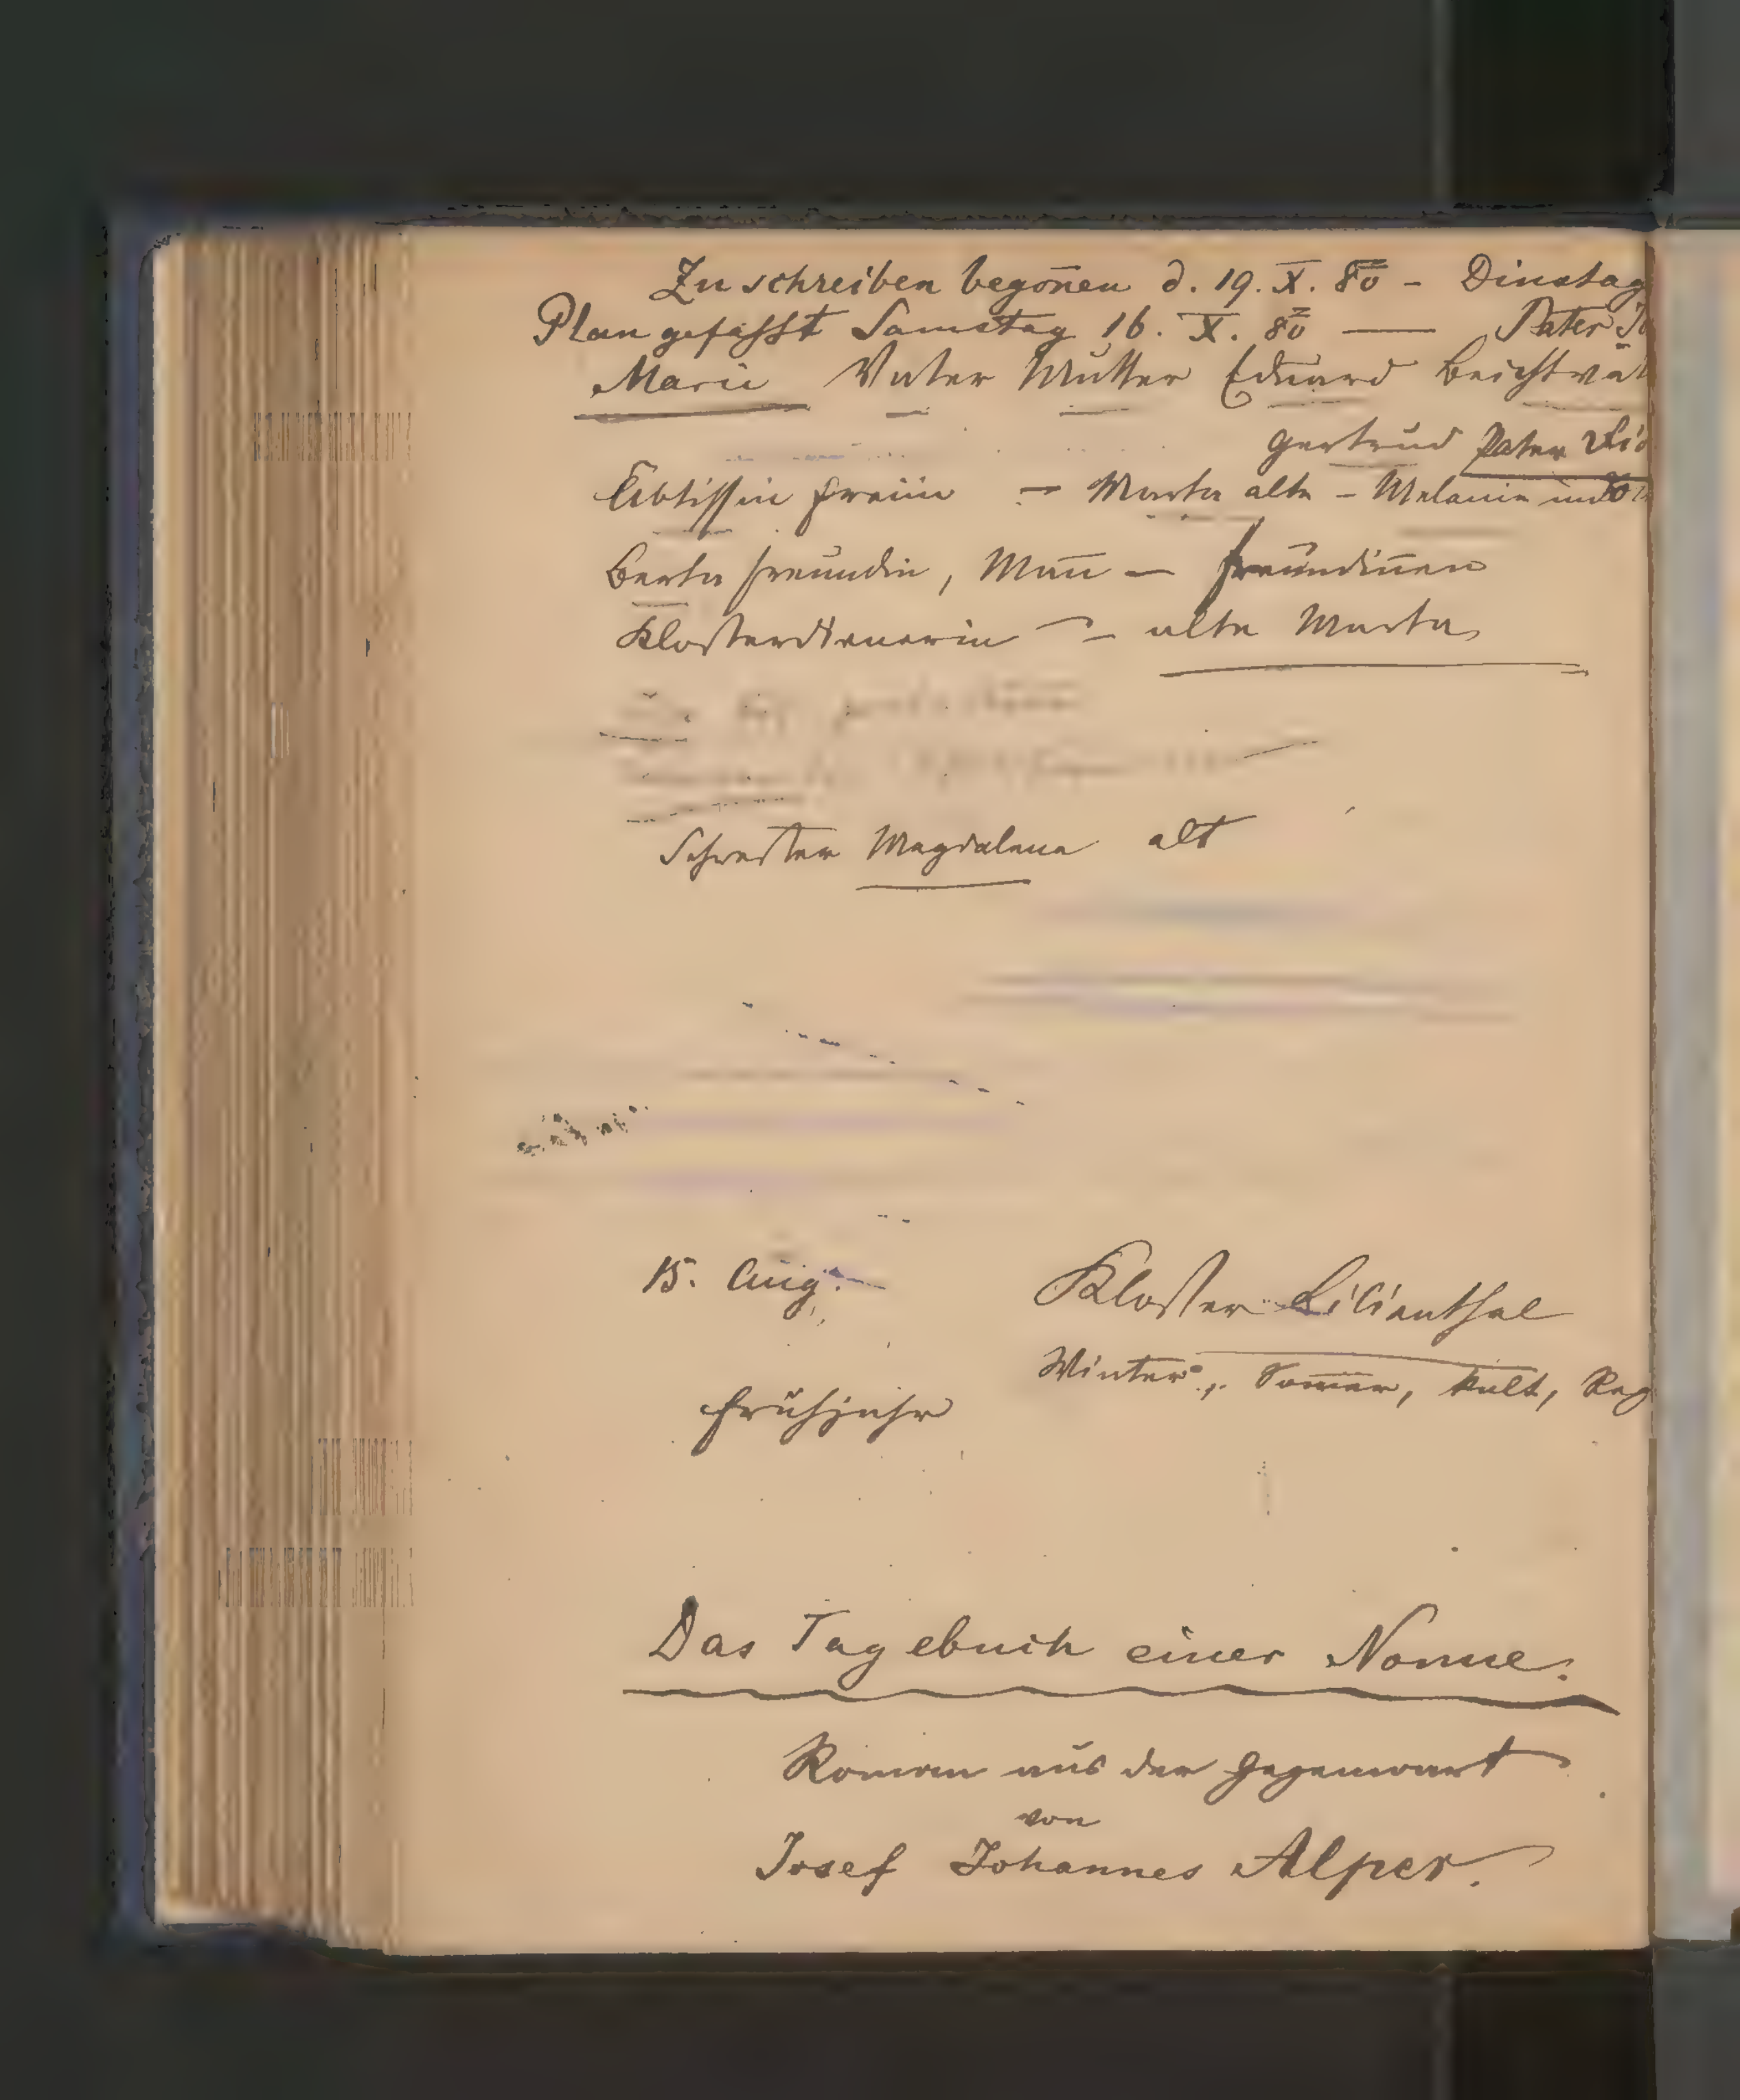 Zu schreiben begon̄en d. 19. X. 80 – Dinstag
Plan gefasst Samstag 16. X. 80 — Pater
Marie Vater Mutter Eduard Beichtvat
Gertrud Pater
Äbtissin – Marta alte – Melanie
Berta Freundin, Man̄ – Freundin̄en
Klosterdienerin – alte Marta
Schwester Magdalena alt
15. Aug.
Kloster Lilienthal
Winter, Som̄er, kalt, Reg
Frühjahr
Das Tagebuch einer Nonne.
Roman aus der Gegenwart
von
Josef Johannes Alper.